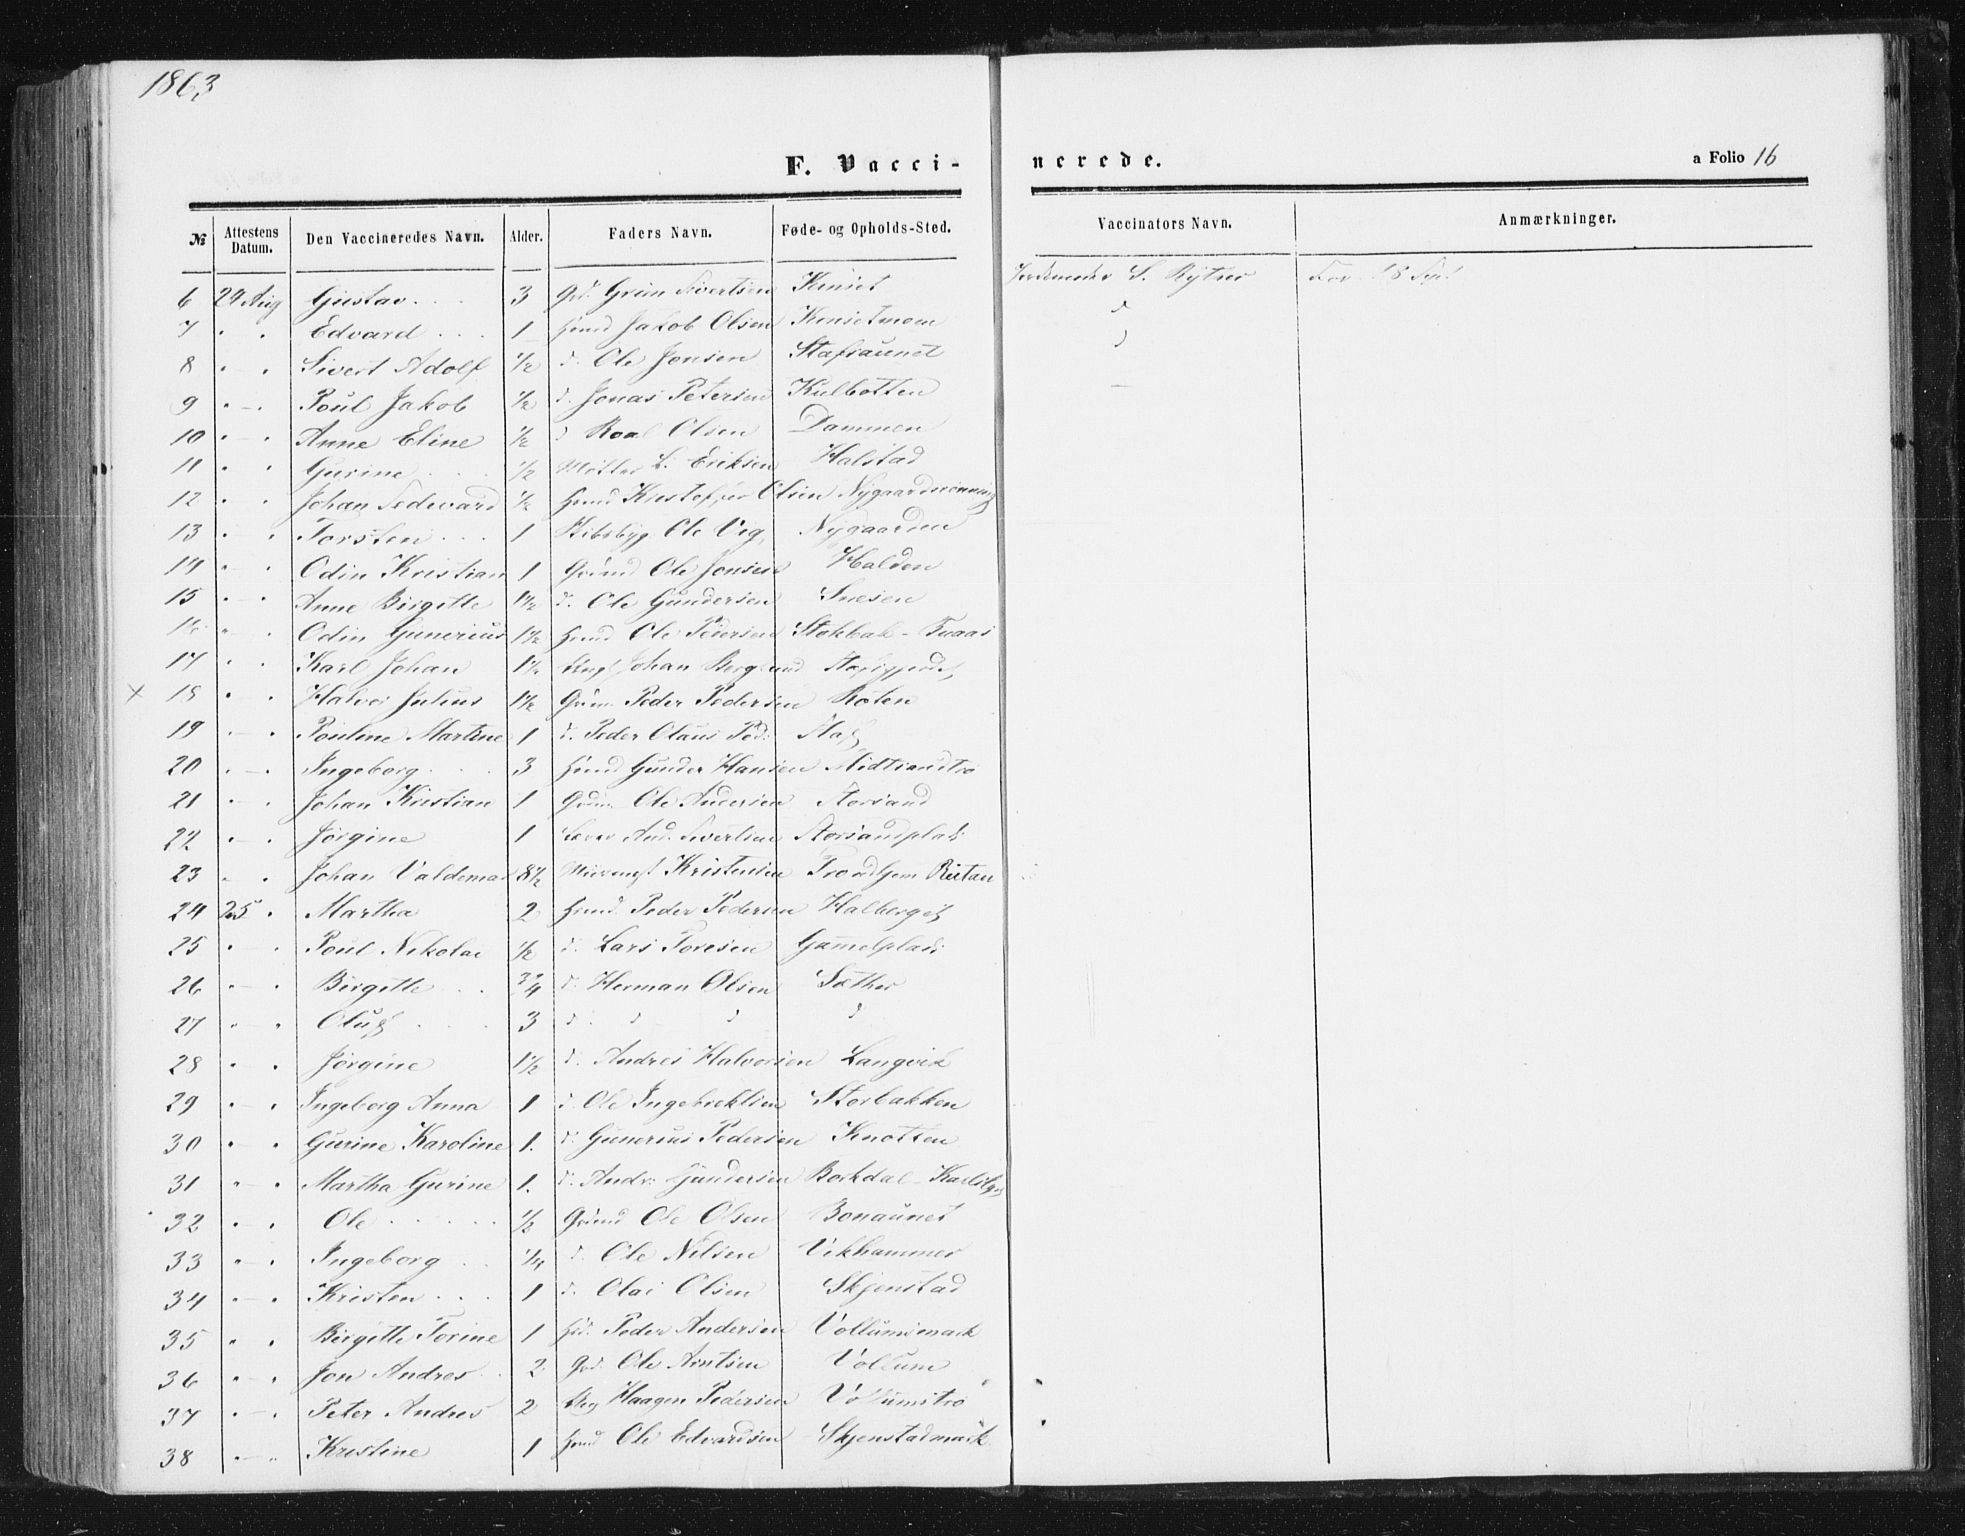 1863
F. Vacci-
nerede.
a Folio 16
№ Attestens Datum. Den Vaccineredes Navn. Alder. Faders Navn. Føde- og Opholds-Sted. Vaccinators Navn. Anmærkninger.
6 24 Aug Gustav 3 Grd. Grim Sivertsen Kuniset Jordemoder S. Rytter
7 " " Edvard 1 Hmd Jakob Olsen
8 " " Sivert Adolf 1/2 d. Ole Jonsen Stafsaunet
9 " " Poul Jakob 1/2 d. Jonas Petersen Kulbotten
10 " " Anne Eline 1/2 d Roal Olsen Dammen
11 " " Gurine 1/2 L. Eriksen Halstad
12 " " Johan Sedevard 1/2 Hmd Kristoffer Olsen
13 " " Torsten 1 Ole Vig. Nygaarden
14 " " Odin Kristian 1 Grmd Ole Jonsen Halden
15 " " Anne Birgitte 1 1/2 d. Ole Gundersen Snesen
16 " " Odin Gunerius 1 1/2 Hmd Ole Pedersen
17 " " Karl Johan 1 1/2 Johan Berglund
× 18 " " Halvor Julius 1 1/2 Grm. Peder Pedersen Roten
19 " " Pouline Martine 1 d. Peder Olaus Ped:
20 " " Ingeborg 3 Hmd Gunder Hansen Midtsandtrø
21 " " Johan Kristian 1 Grm. Ole Andersen Storsand
22 " " Jørgine 1 And. Sivertsen Storsandplads
23 " " Johan Valdemar 8 1/2 Kristensen Trondhjem Reitan
24 25 " Martha 2 Hmd. Peder Pedersen Halberget
25 " " Poul Nikolai 1/2 d. Lars Toresen Gammelplads
26 " " Birgitte 3/4 d. Herman Olsen Sæther
27 " " Oluf 3 d. d d d
28 " " Jørgine 1 1/2 d. Andres Halvorsen Langvik
29 " " Ingeborg Anna 1 d. Ole Ingebrektsen Storbakken
30 " " Gurine Karoline 1. d. Gunerius Pedersen Knotten
31 " " Martha Gurine 1. d. Andr: Gundersen
32 " " Ole 1/2 Grmd Ole Olsen Bonaunet
33 " " Ingeborg 1/4 d. Ole Nilsen Vikhammer
34 " " Kristen 1 d. Olai Olsen Skjenstad
35 " " Birgitte Torine 1 Hd. Peder Andersen Vollumsmark
36 " " Jon Andres 2 Grd. Ole Arntsen Vollum
37 " " Peter Andres 2 Haagen Pedersen Vollumstrø
38 " " Kristine 1 Hmd Ole Edvardsen Skjenstadmark